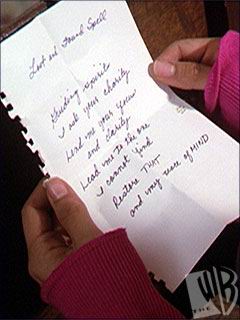 Lost and Found Spell
Guiding spirits
I ask your charity
Lead me your focus
and clarity
Lead me to the one
I cannot find
Restore THAT
and my peace of MIND
THE WB